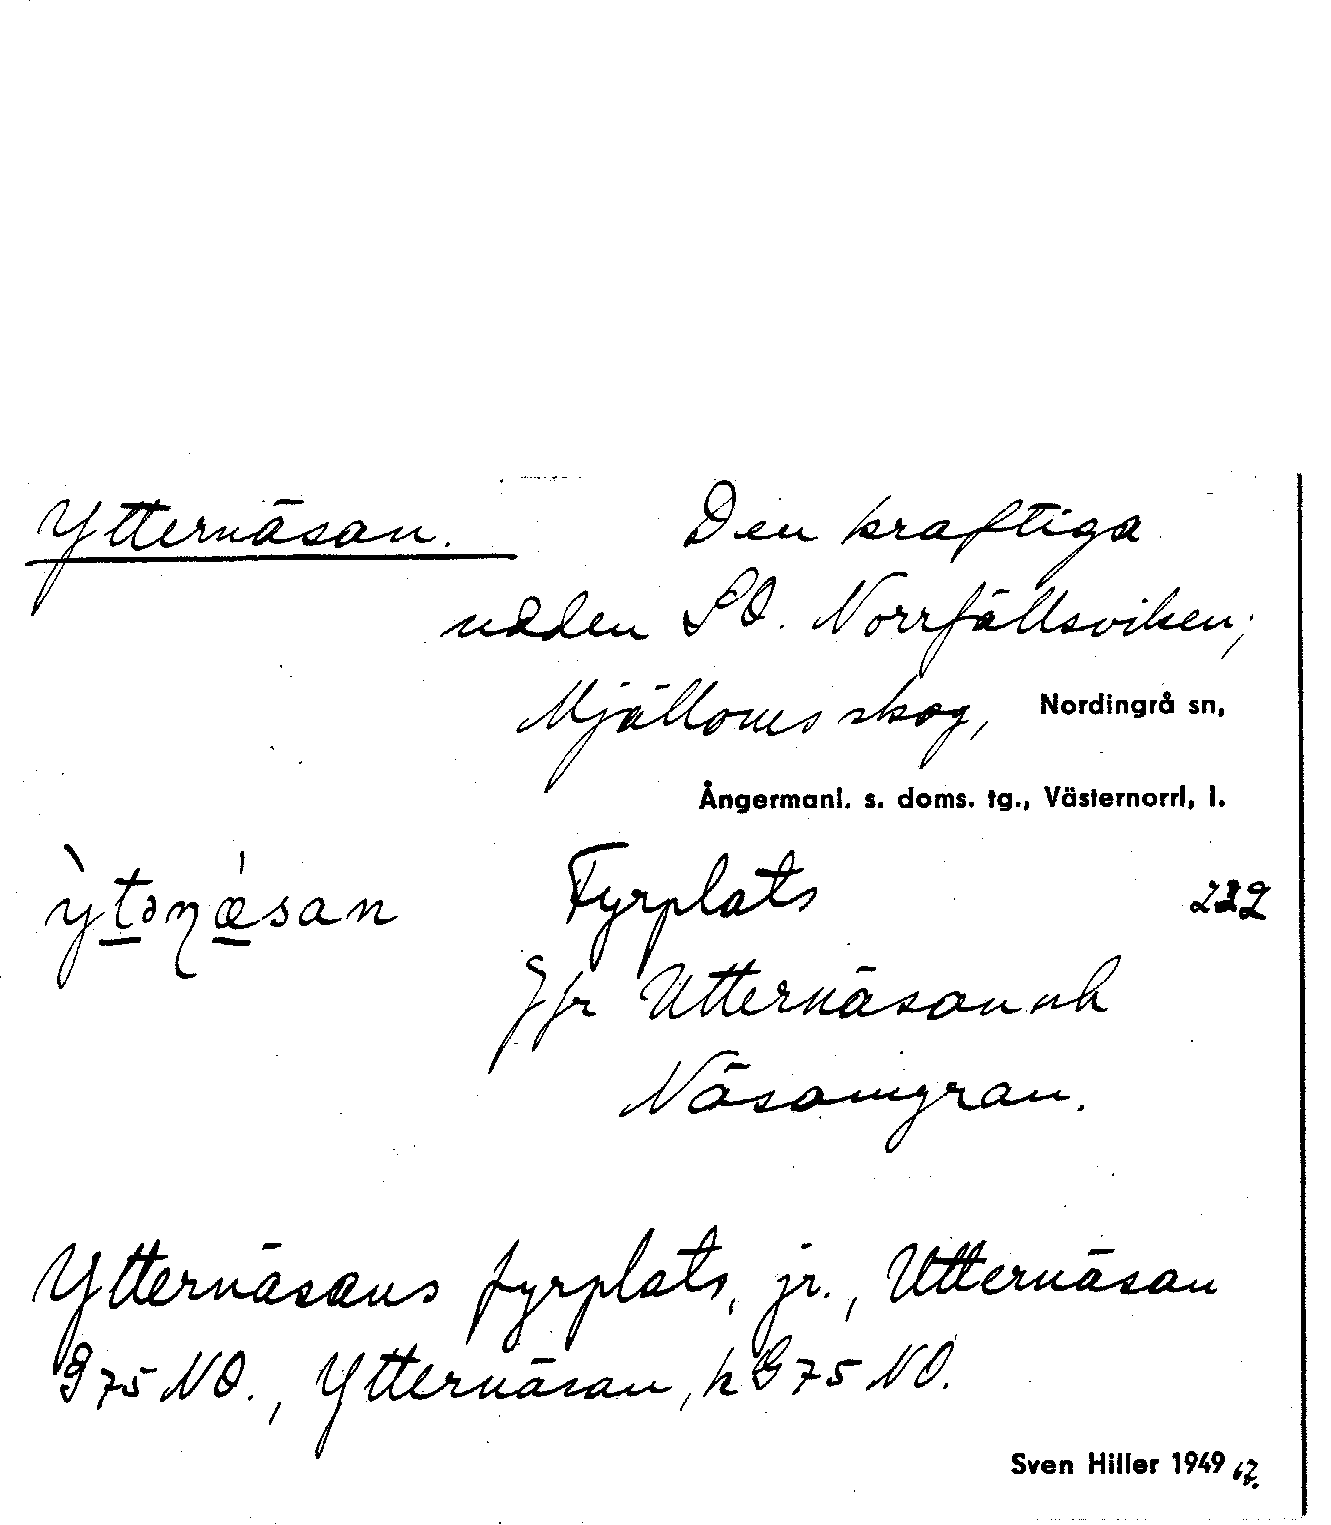 Ytternäsan. Den kraftiga
udden SO. Norrfällsviken;
Mjälloms skog, Nordingrå sn,
Ångermanl. s. doms. tg., Västernorrl. l.
ỳtəɳǽsan Fyrplats 222
Jfr Utternäsan och
Näsaungran.
Ytternäsans fyrplats, jr., Utternäsan
G 75 NO., Ytternäsan, h G 75 NO.
Sven Hiller 1949